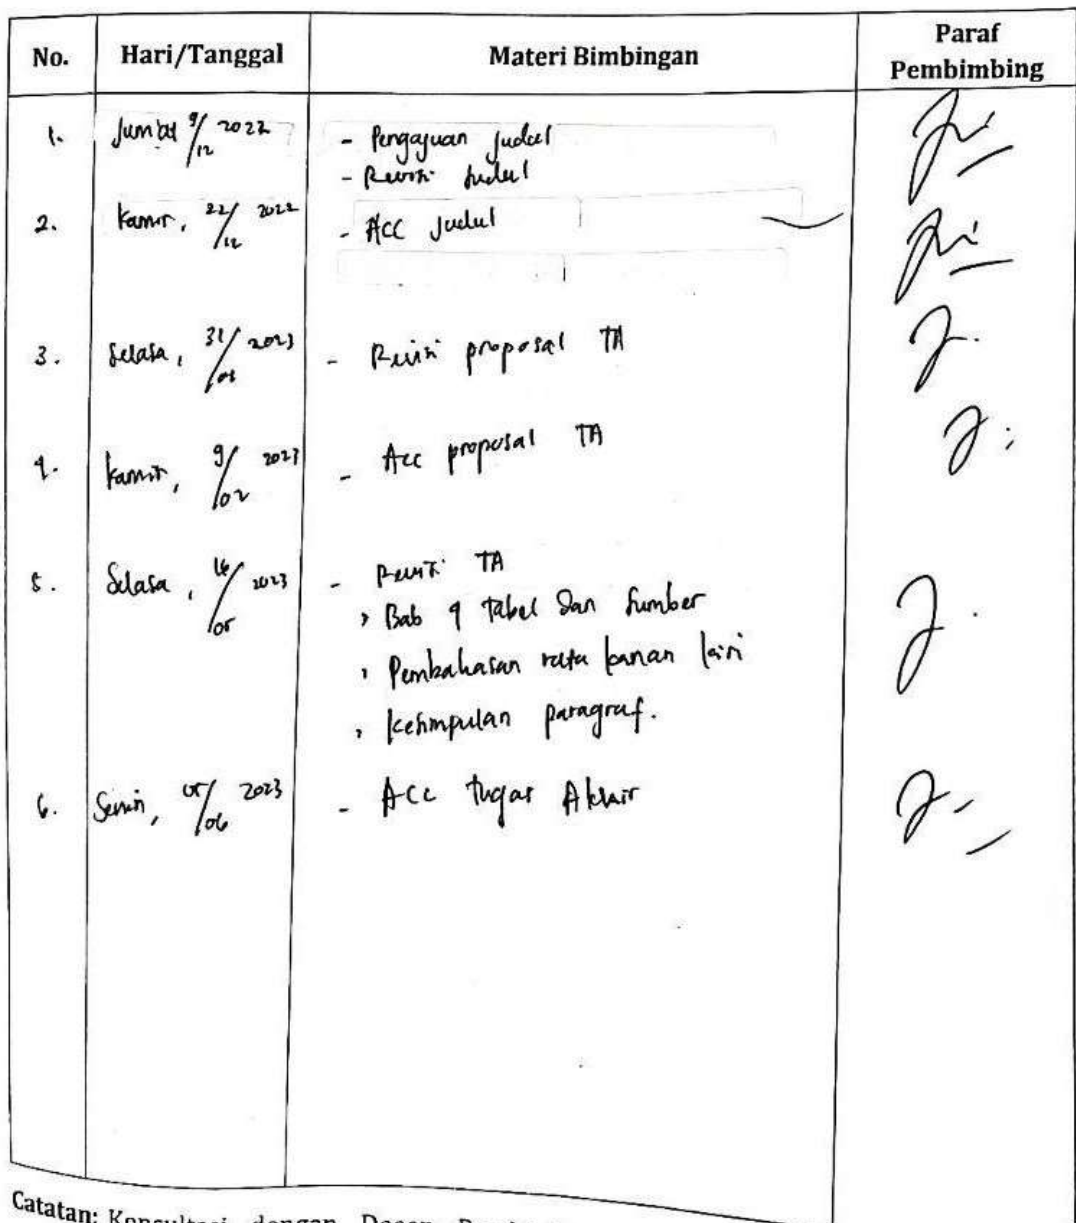 No. Hari/Tanggal Materi Bimbingan Paraf Pembimbing
1. Jum'at 9/12 2022 - Pengajuan Judul
- Revisi Judul
2. Kamis, 22/12 2022 - ACC Judul
3. Selasa, 31/01 2023 - Revisi proposal TA
4. Kamis, 9/02 2023 - Acc proposal TA
5. Selasa, 16/05 2023 - Revisi TA
, Bab 4 tabel dan sumber
, Pembahasan rata kanan kiri
, Kesimpulan paragraf.
6. Senin, 05/06 2023 - Acc Tugas Akhir
Catatan: Konsultasi dengan Dosen